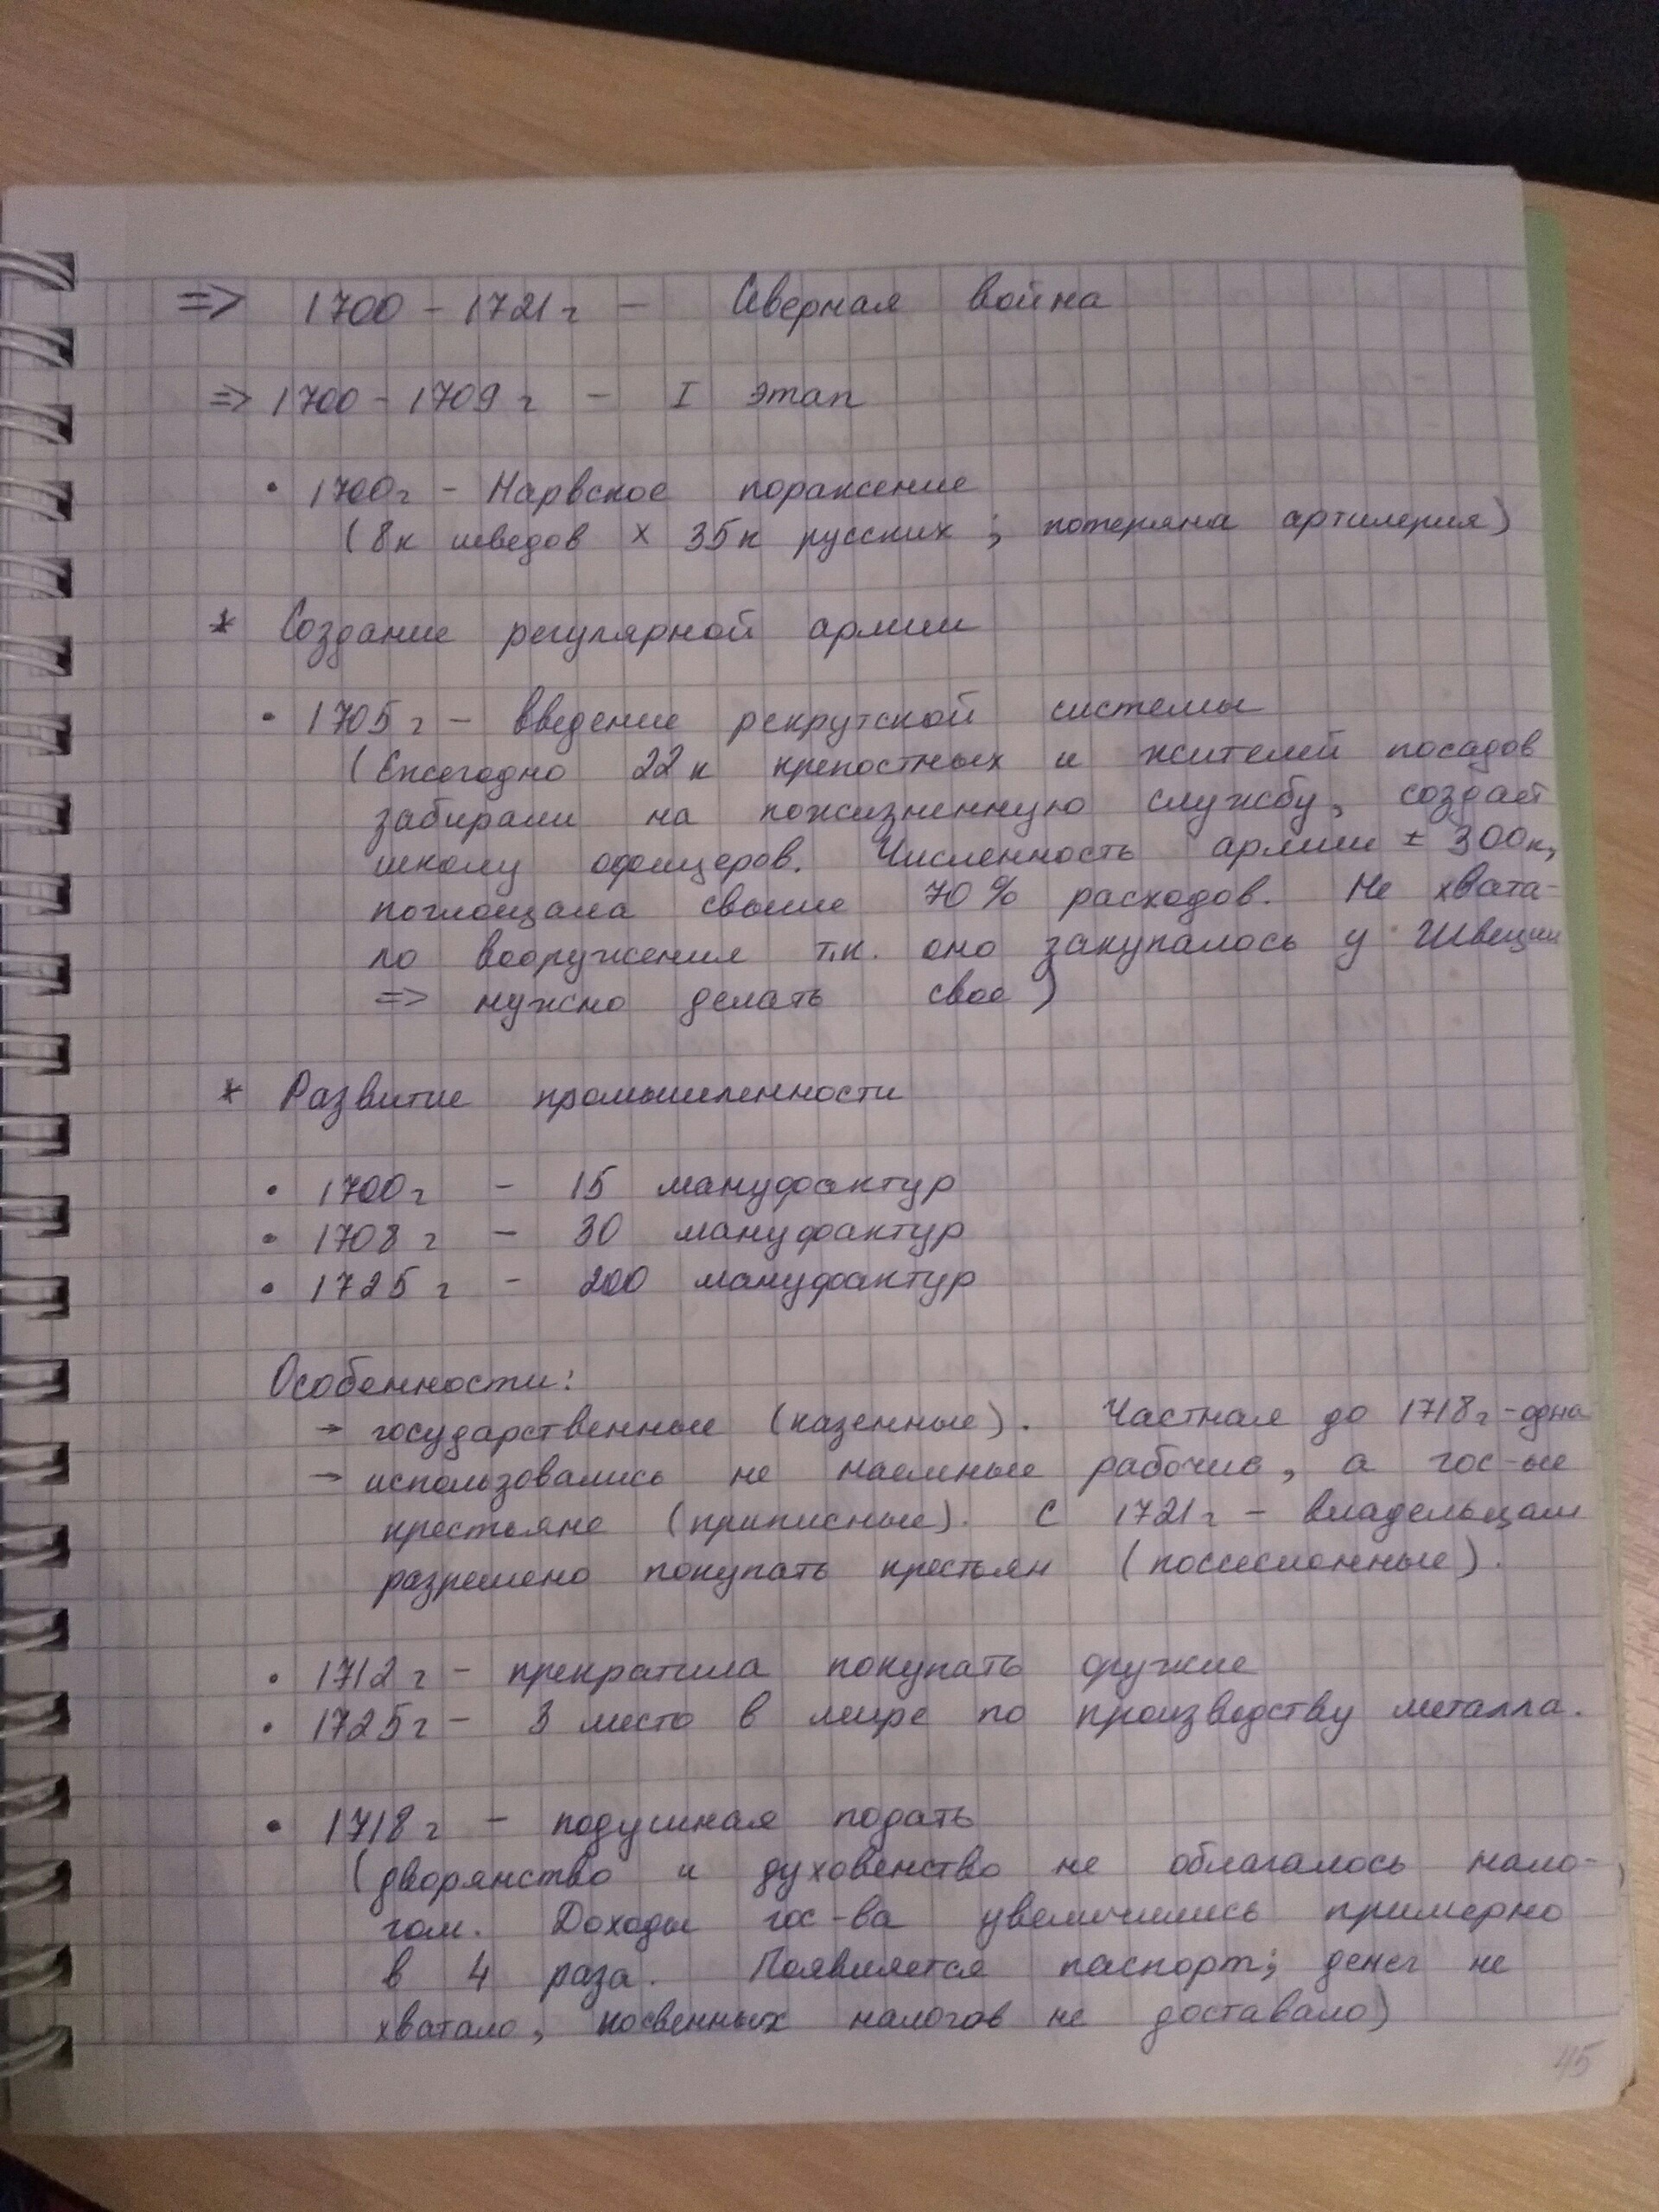 => 1700 - 1721 г — Северная война
=> 1700 - 1709 г — I этап
• 1700г - Нарвское поражение
(8к шведов х 35к русских ; потеряна артилерия)
* Создание регулярной армии
• 1705 г — введение рекрутской системы
(Ежегодно 22к крепостных и жителей посадов
забирали на пожизненную службу, создает
школу офицеров. Численность армии ± 300к,
поглощала свыше 70% расходов. Не хвата-
ло вооружения т.к. оно закупалось у Швеции
=> нужно делать свое)
* Развитие промышленности
• 1700г - 15 мануфактур
• 1708 г - 30 мануфактур
• 1725 г - 200 мануфактур
Особенности:
→ государственные (казенные). Частная до 1718г-одна
→ использовались не наемные рабочие, а гос-ые
крестьяне (приписные). С 1721г — владельцам
разрешено покупать крестьян (поссесионные).
• 1712г - прекратила покупать оружие
• 1725г - 3 место в мире по производству металла.
• 1718г - подушная подать
(дворянство и духовенство не облагалось нало-
гом. Доходы гос-ва увеличились примерно
в 4 раза. Появляется паспорт; денег не
хватало, косвенных налогов не доставало)
45